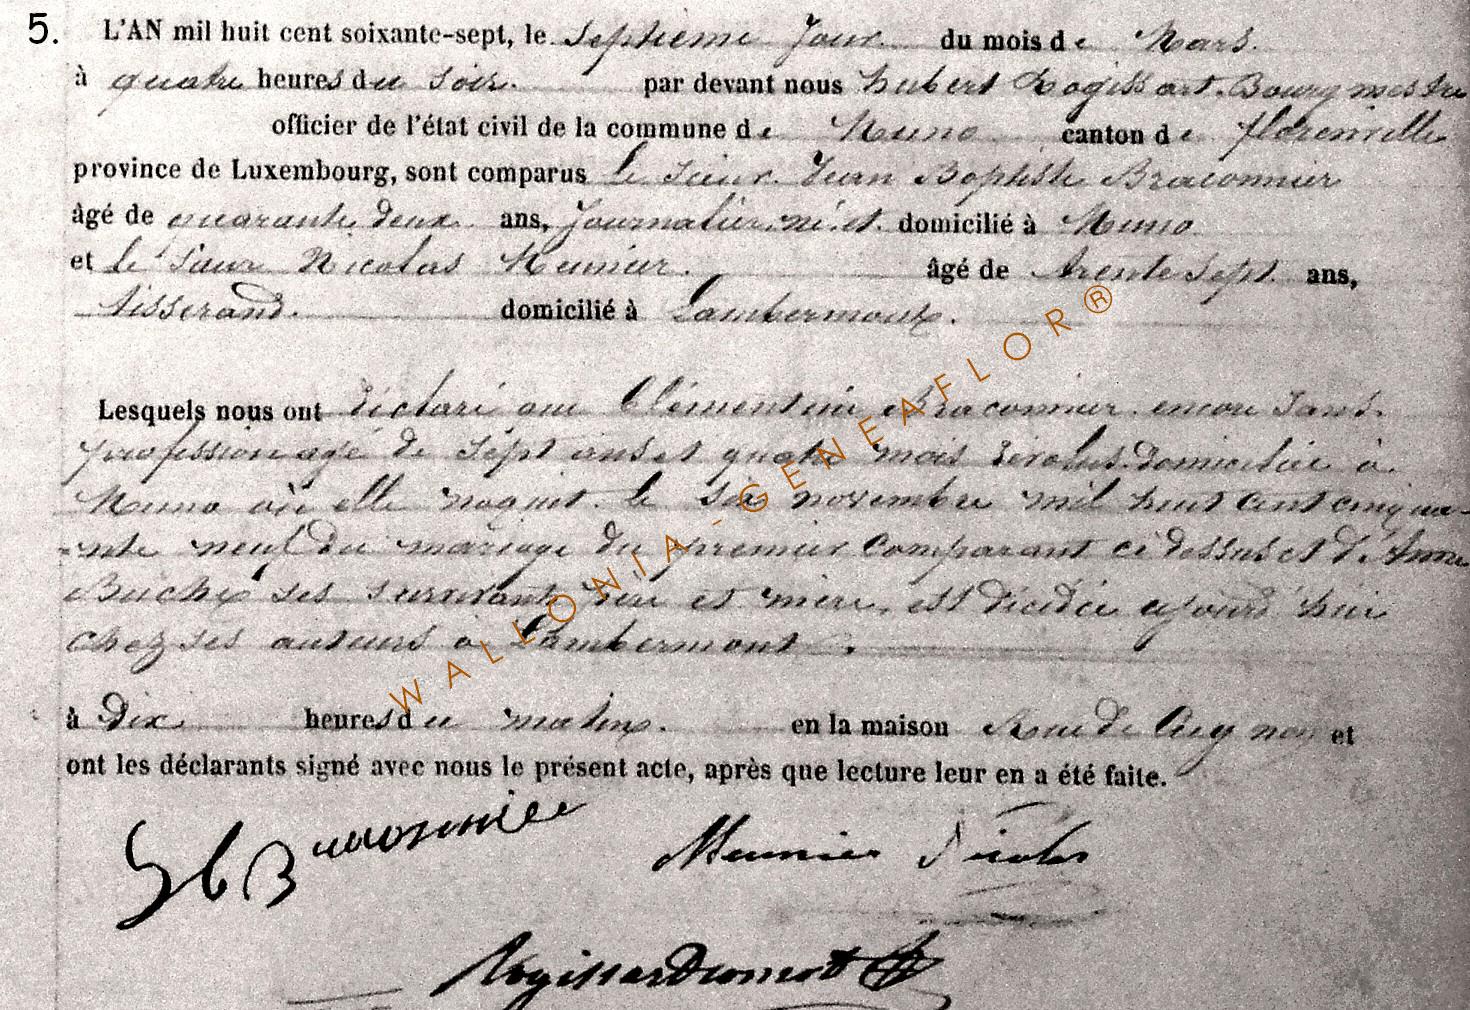 5. L'AN mil huit cent soixante-sept, le Septieme Jour du mois de Mars.
à quatre heures du soir. par devant nous hubert Rogissart. Bourgmestre
officier de l'état civil de la commune de Muno canton de florenville
province de Luxembourg, sont comparus le Sieur Jean Baptiste Braconnier
âgé de quarante deux ans, Journalier, né et domicilié à Muno
et le Sieur Nicolas Meunier. âgé de trente sept ans,
tisserand. domicilié à Lambermont.
Lesquels nous ont déclaré que Clémentine Braconnier encore sans
profession agé de sept ans et quatre mois révolus domiciliée à
Muno où elle naquit le six novembre mil huit cent cinqua-
-nte neuf du mariage du premier Comparant ci dessus et d'Anne
ses survivants père et mère, est décédée ajourd'hui
chez ses auteurs à Lambermont.
à Dix heures du matin. en la maison Rue de et
ont les déclarants signé avec nous le présent acte, après que lecture leur en a été faite.
JbBraconnier Meunier Nicolas
WALLONIA-GENEAFLOR®